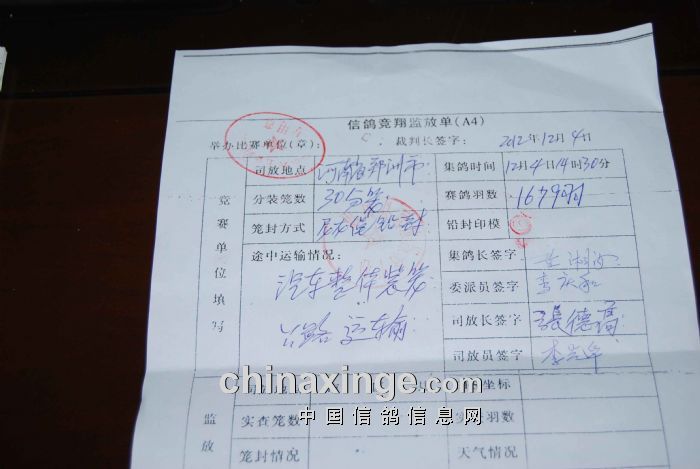 信鸽竞翔监放单(A4)
举办比赛单位(章): 裁判长签字: 2012年12月4日
竞赛单位填写
司放地点 河南省郑州市 集鸽时间 12月4日14时30分
分装笼数 30 笼 赛鸽羽数 1679羽
笼封方式 铅封 铅封印模
途中运输情况: 集鸽长签字
汽车整体装笼 委派员签字
公路运输 司放长签字 張德
司放员签字 李
chinaxinge.com
中国信鸽信息网
坐标
监放 实查笼数 羽数
笼封情况 天气情况